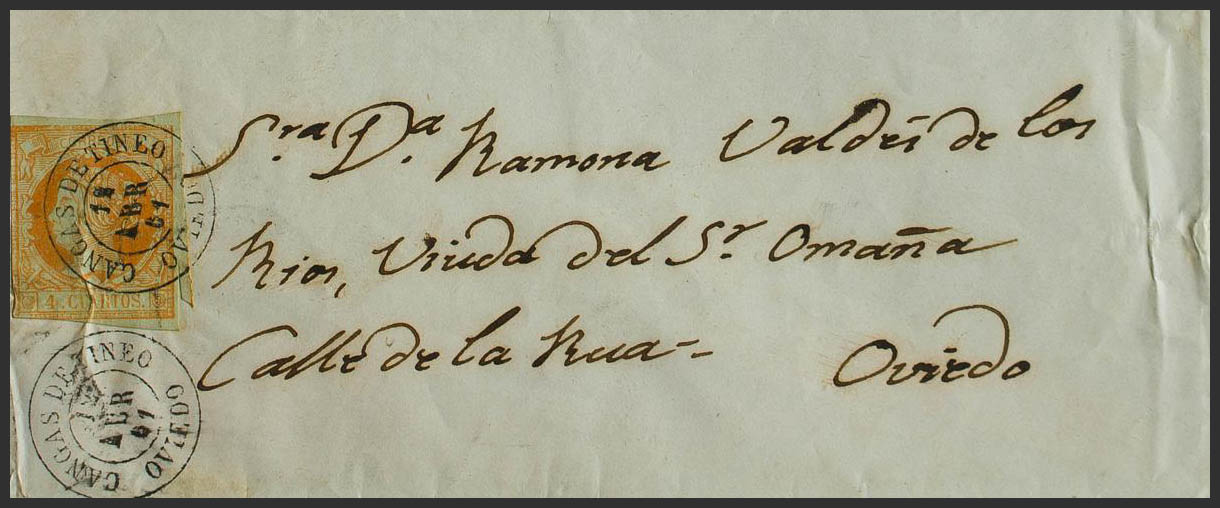 Sra Da. Ramona Valdés de los
Rios, Viuda del Sr. Omaña
Calle de la Rua-
Oviedo
CANGAS DE TINEO OVIEDO
12 ABR 61
4 CUARTOS.
CANGAS DE TINEO OVIEDO
12 ABR 61